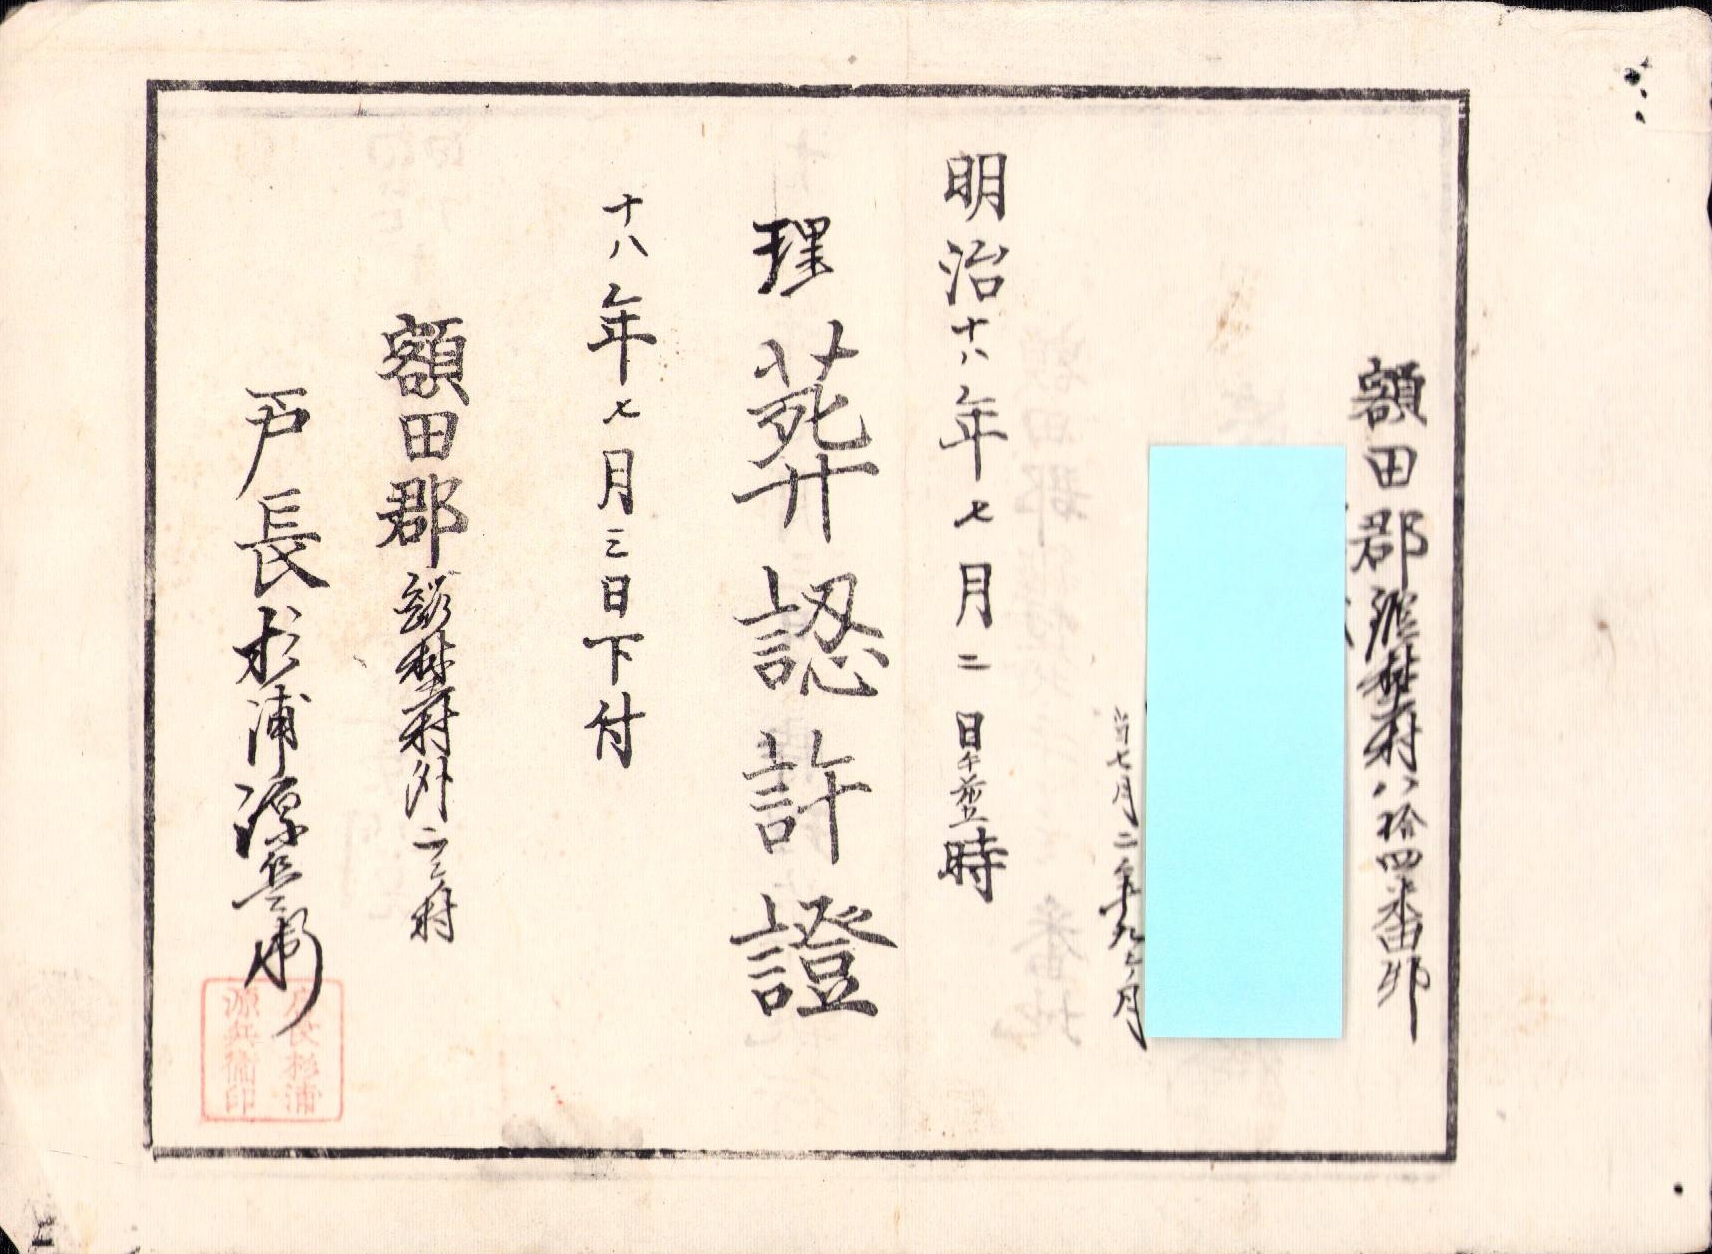 額田郡 村八拾四番邸
当七月二年九ヶ月
明治十八年七月二日午前 時
埋葬認許證
十八年七月三日下付
額田郡 村外 村
戸長杉浦源兵衛
戸長杉浦
源兵衛印